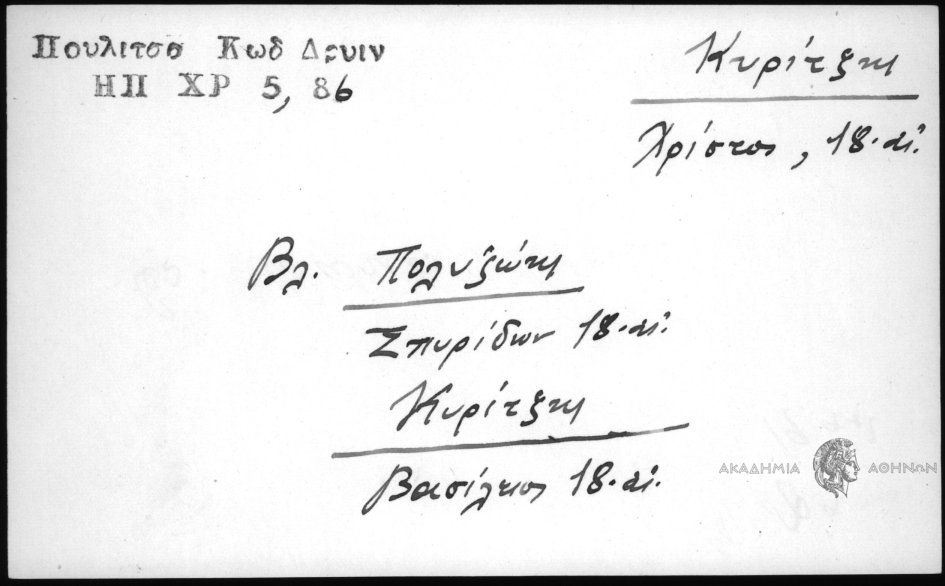 Πουλιτσα Κωδ Δρυιν
ΗΠ ΧΡ 5, 86
Κυρίτζη
Χρίστος, 18. αἰ.
Βλ. Πολυζώη
Σπυρίδων 18. αἰ.
Κυρίτζη
Βασίλειος 18. αἰ.
ΑΚΑΔΗΜΙΑ ΑΘΗΝΩΝ